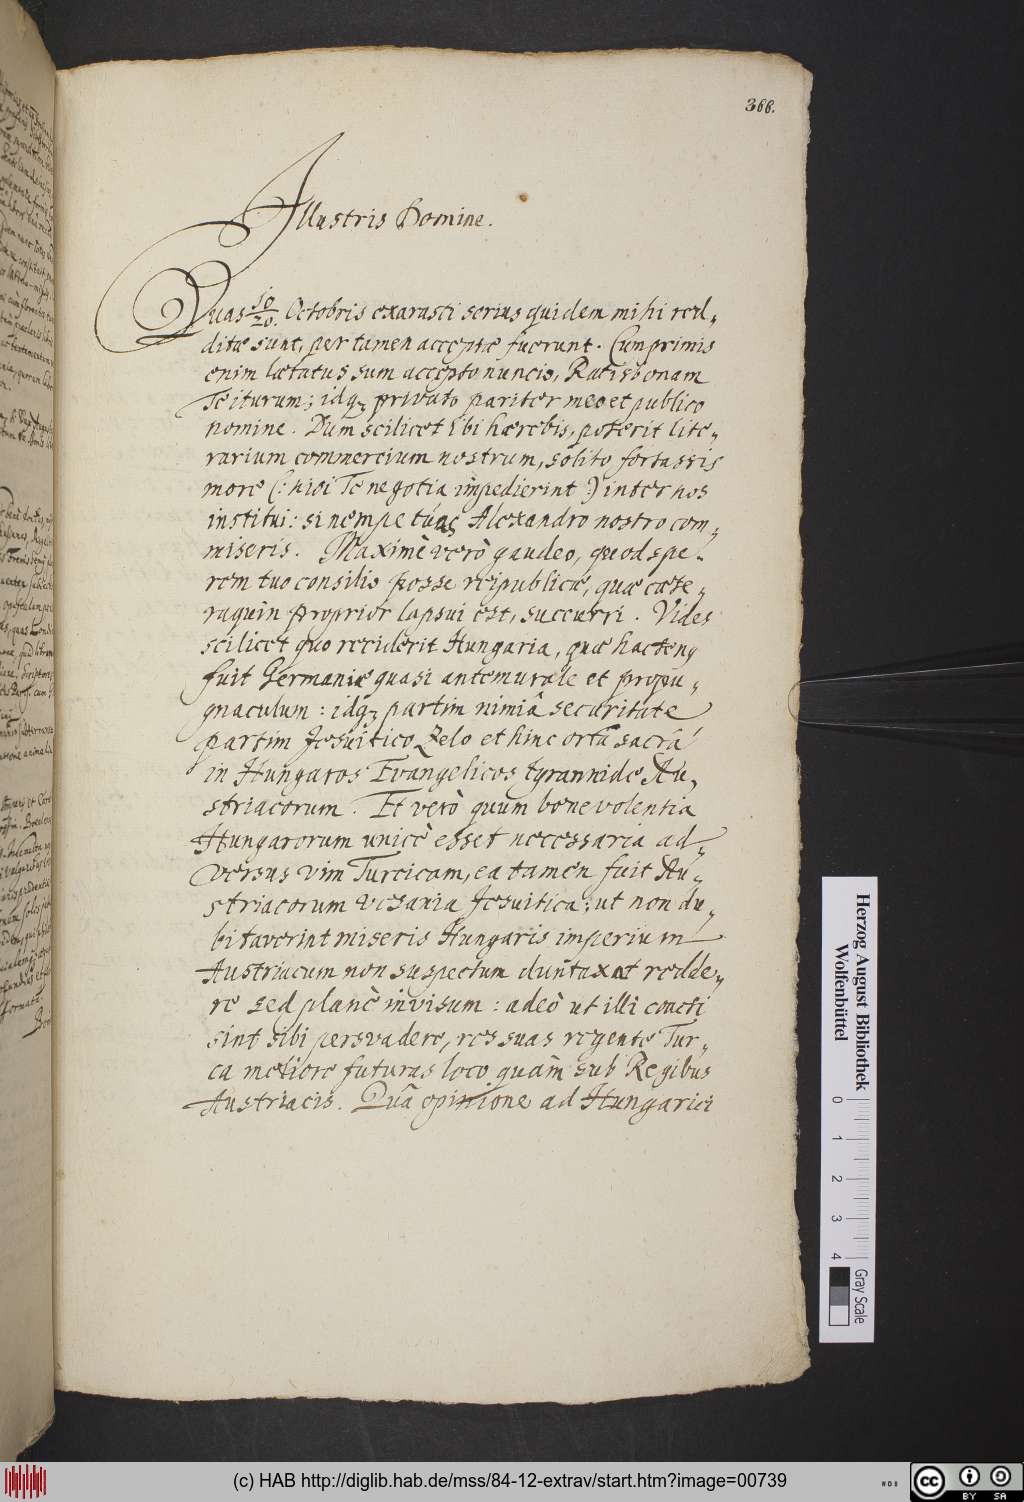 366.
Illustris Domine.
Quas 10/20. Octobris exarasti serius quidem mihi red-
ditæ sunt, per tamen acceptæ fuerunt. Cumprimis
enim lætatus sum accepto nuncio, Ratisbonam
Te iturum; idq; privato pariter meo et publico
nomine. Dum scilicet ibi hærebis, poterit lite-
rarium commercium nostrum, solito fortassis
more (: nisi Te negotia impedierint :) inter nos
institui: si nempe tuas Alexandro nostro com-
miseris. Maximè verò gaudeo, quod spe-
rem tuo consilio posse reipublicæ, quæ cæte-
raquin proprior lapsui est, succurri. Vides
scilicet quo reciderit Hungaria, quæ hactenq
fuit Germaniæ quasi antemurale et propu-
gnaculum: idq; partim nimiâ securitate
partim Jesuitico Zelo et hinc ortâ sacrâ
in Hungaros Evangelicos tyrannide Au-
striacorum. Et verò quum benevolentia
Hungarorum unicè esset necessaria ad-
versus vim Turcicam, ea tamen fuit Au-
striacorum vesania Jesuitica: ut non du-
bitaverint miseris Hungaris imperium
Austriacum non suspectum duntaxat redde-
re sed planè invisum: adeò ut illi coacti
sint sibi persvadere, res suas regente Tur-
ca meliore futuras loco quàm sub Regibus
Austriacis. Quâ opinione ad Hungarici
Herzog August Bibliothek
Wolfenbüttel
0 1 2 3 4
Gray Scale
(c) HAB http://diglib.hab.de/mss/84-12-extrav/start.htm?image=00739
cc BY SA